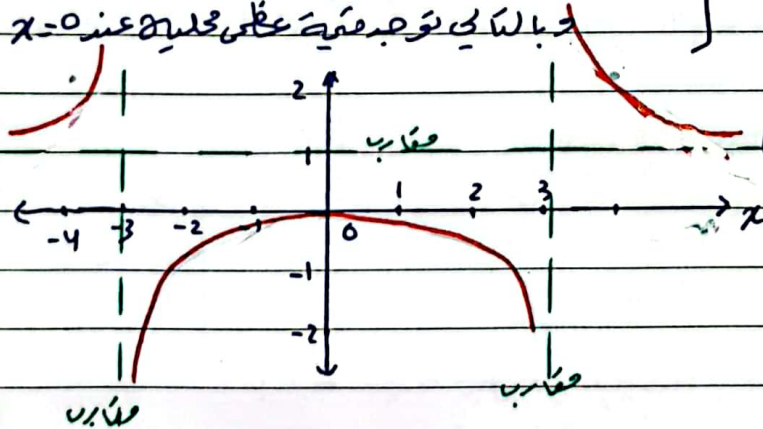 وبالتالي توجد قيمة عظمى محلية عند x=0
2
مقارب
1
1 2 3
x
-4 -3 -2 -1 0
-1
-2
مقارب
مقارب